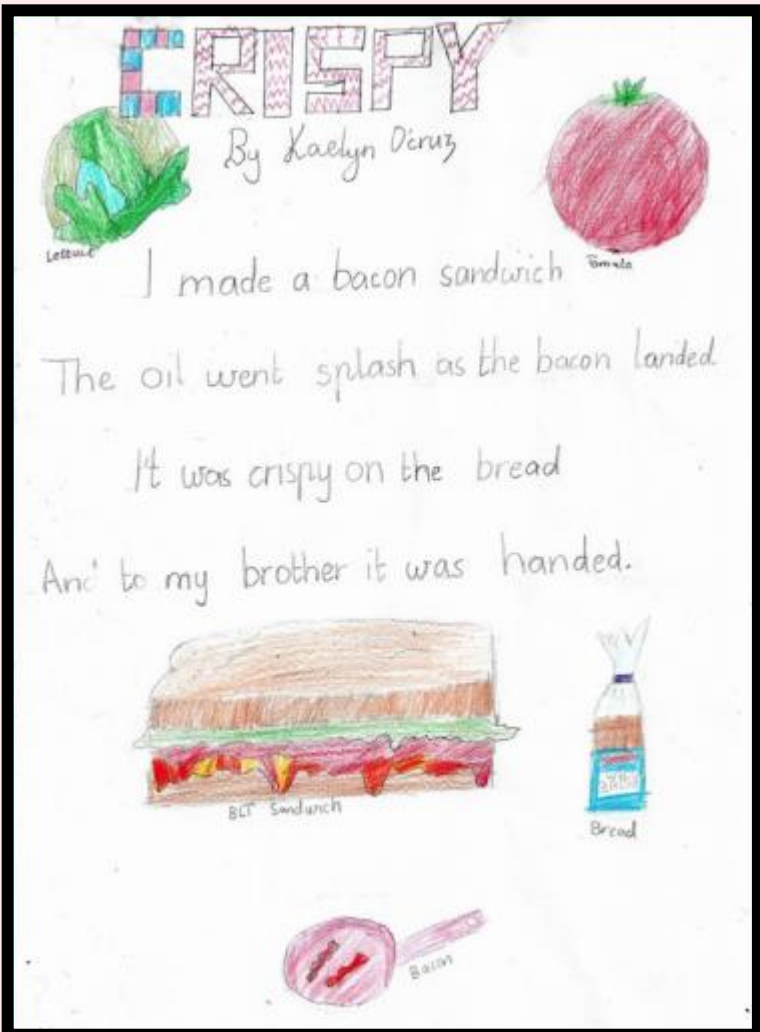 CRISPY
By Kaelyn D'cruz
Lettuce
Tomato
I made a bacon sandwich
The oil went splash as the bacon landed
It was crispy on the bread
And to my brother it was handed.
BLT Sandwich
Bread
Bacon